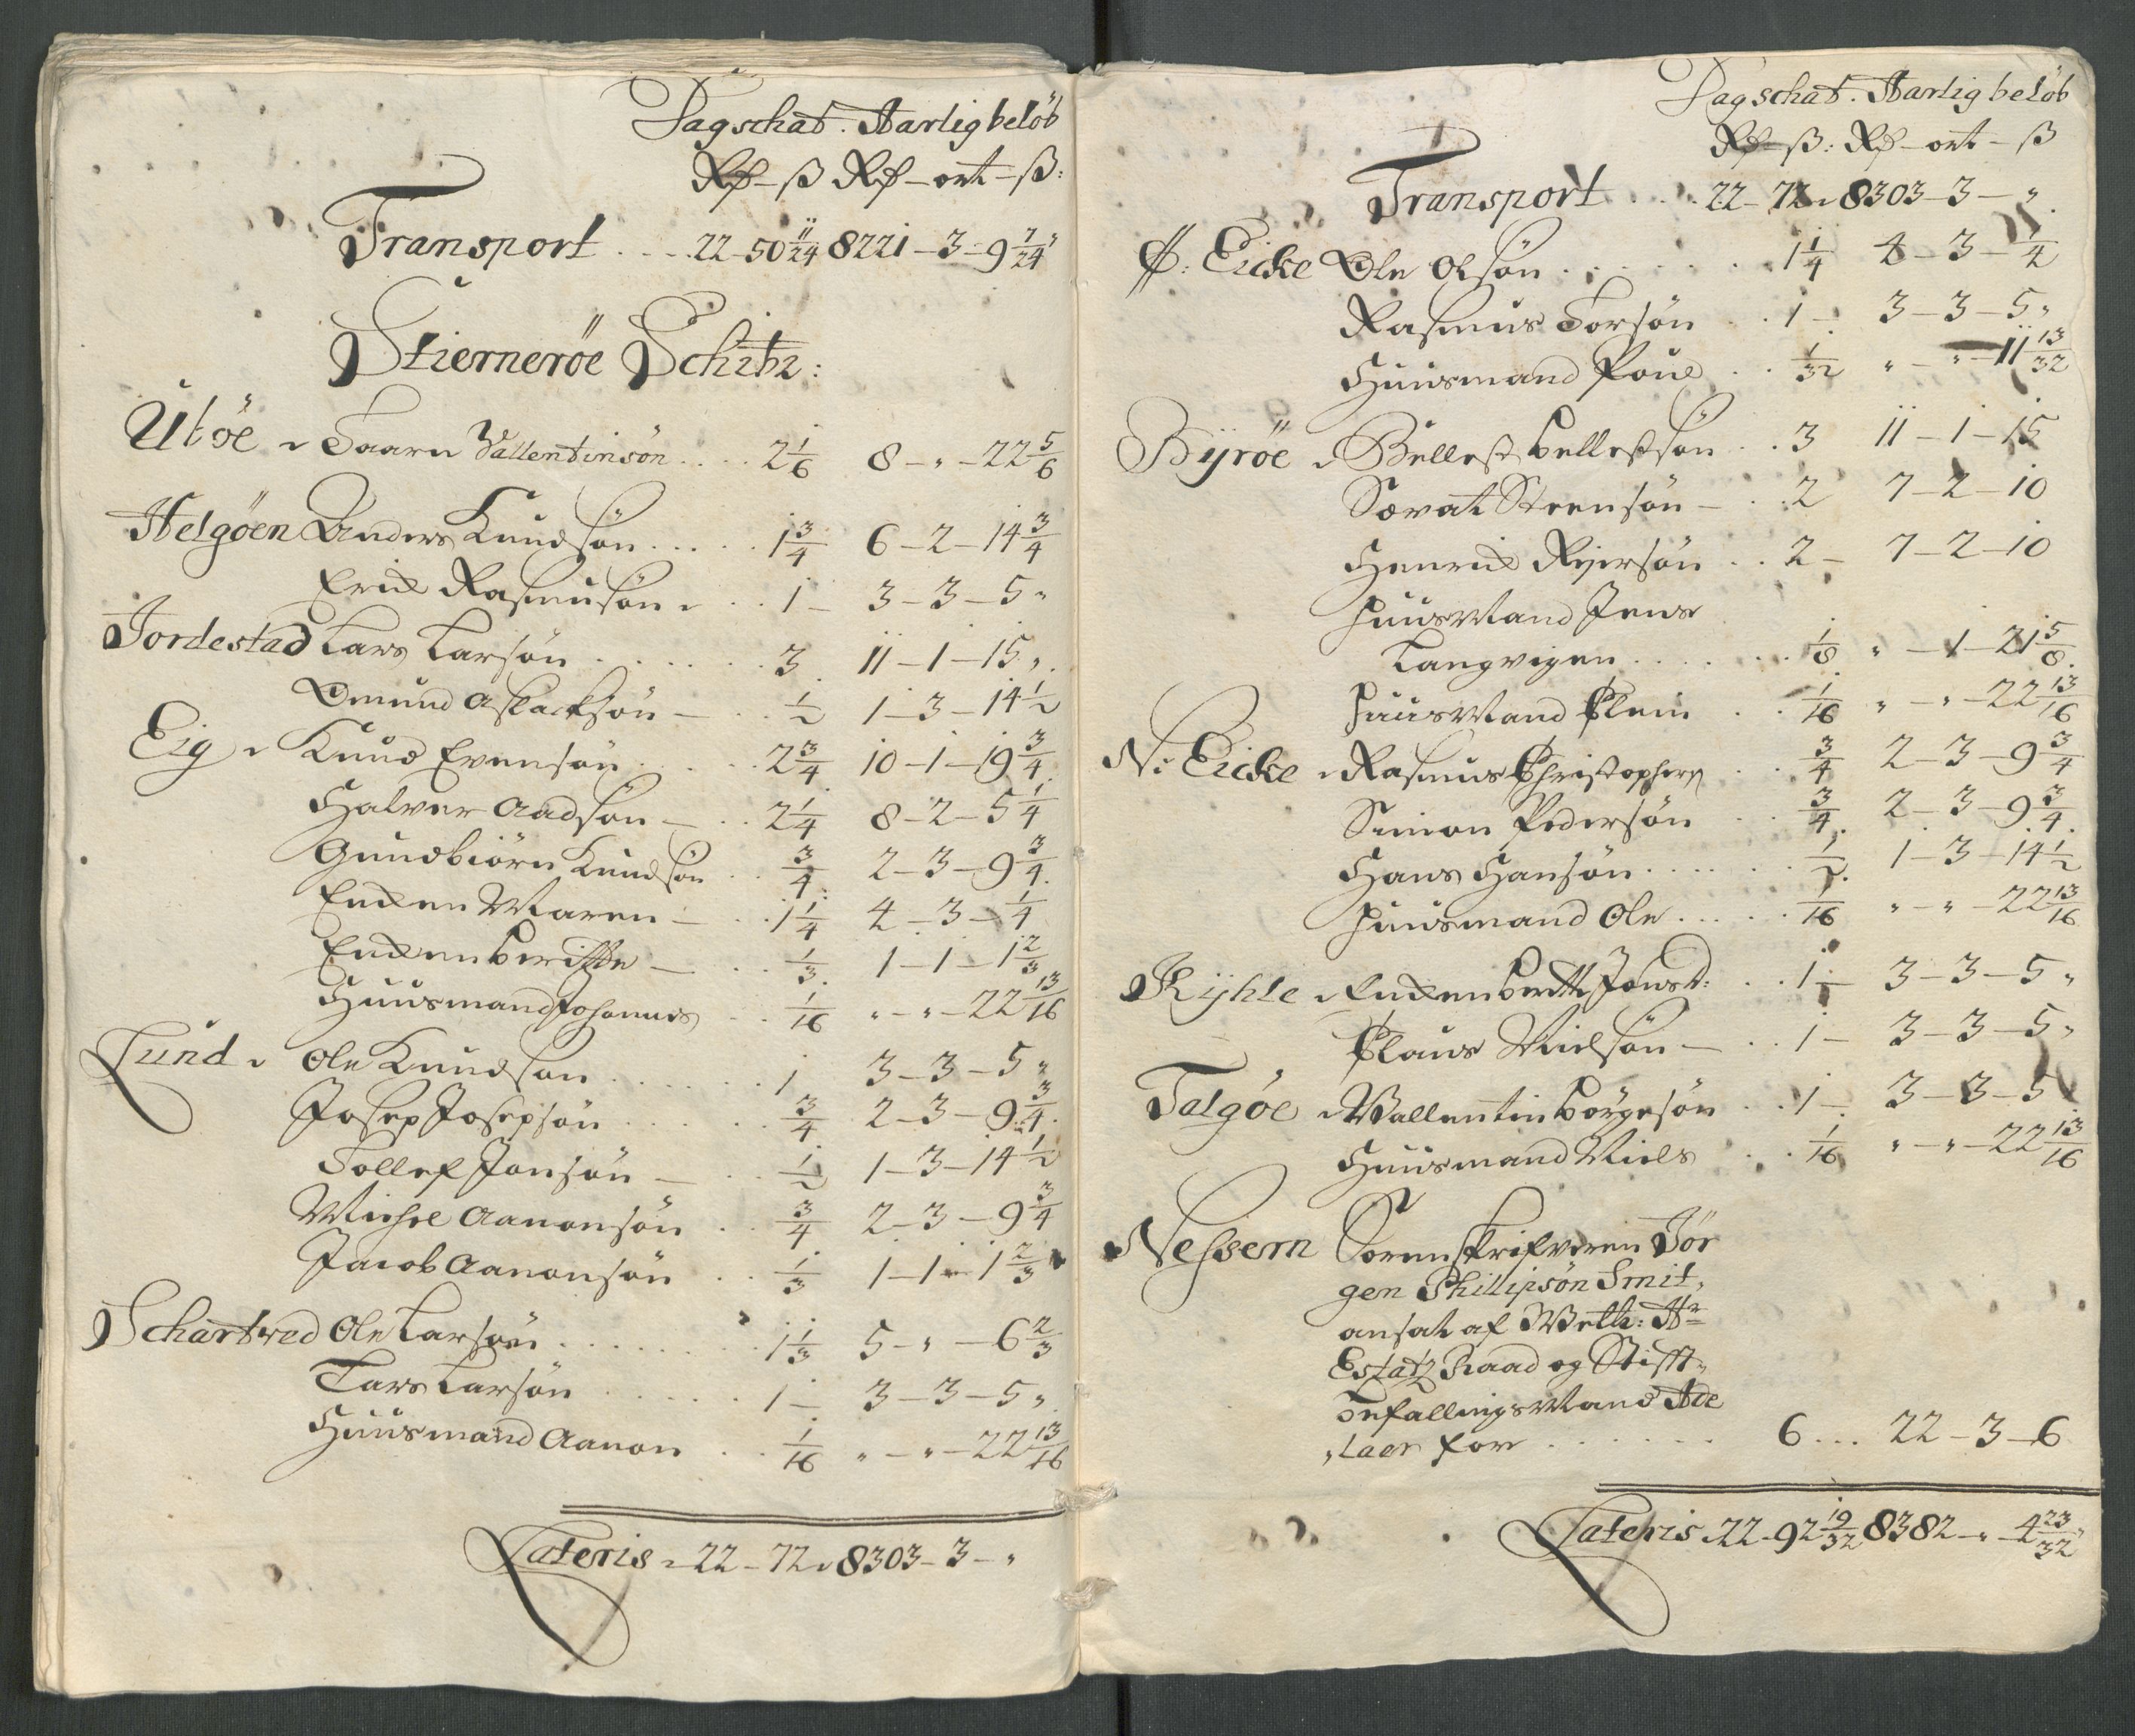 Dagschat. Aarlig belöb
Rd – ß Rd – ort – ß:
Transport .... 22 - 50 11/24 8221 – 3 – 9 7/24
Stiernerøe Schibr:
Utöe Taarn Vallentinsön .... 2 1/6 8 – „ – 22 5/6
Helgöen Anders Knudsön .... 1 3/4 6 – 2 – 14 3/4
Erick Rasmusön .. 1 – 3 – 3 – 5 „
Jordestad Lars Larsön ...... 3 11 – 1 – 15 „
Omund Aslacksön – .. 1/2 1 – 3 – 14 1/2
Eig Knud Evensön .... 2 3/4 10 – 1 – 19 3/4
Halvor Aadsön – .. 2 1/4 8 – 2 – 5 1/4
Gundbiörn Knudsön .. 3/4 2 – 3 – 9 3/4
Encken Maren – .. 1 1/4 4 – 3 – 1/4
Encken Beritte – .. 1/3 1 – 1 – 1 2/3
Huusmand Johannes – .. 1/16 „ – „ – 22 13/16
Lund Ole Knudsön ...... 1 3 – 3 – 5 „
Josep Josepsön ...... 3/4 2 – 3 – 9 3/4
Tollef Jonsön – .. 1/2 1 – 3 – 14 1/2
Michel Aanonsön .. 3/4 2 – 3 – 9 3/4
Jacob Aanonsön .. 1/3 1 – 1 – 1 2/3
Schartved Ole Larsön ........ 1 1/3 5 – „ – 6 2/3
Lars Larsön ...... 1 – 3 – 3 – 5 „
Huusmand Aanon .. 1/16 „ – „ – 22 13/16
Lateris 22 – 72 8303 – 3 – „
Dagschat. Aarlig belöb
Rd – ß: Rd – ort – ß
Transport .... 22 – 72 8303 – 3 – „
S: Eicke Ole Olsön ...... 1 1/4 4 – 3 – 1/4
Rasmus Torsön .. 1 – 3 – 3 – 5 „
Huusmand Poul .. 1/32 „ – „ – 11 13/32
Bÿröe Bellest Bellestsön .. 3 11 – 1 – 15
Sævat Steensön – .. 2 7 – 2 – 10
Henrick Reiersön .. 2 – 7 – 2 – 10
Huusmand Jens
Langvigen ...... 1/8 „ – 1 – 21 5/8
Huusmand Clem .. 1/16 „ – „ – 22 13/16
N: Eicke Rasmus Christophers .. 3/4 2 – 3 – 9 3/4
Simon Pedersön .. 3/4 2 – 3 – 9 3/4
Hans Hansön ...... 1/2 1 – 3 – 14 1/2
Huusmand Ole ...... 1/16 „ – „ – 22 13/16
Kÿhle Encken Beritte Jonsd: .. 1 – 3 – 3 – 5 „
Claus Nielsön – .. 1 – 3 – 3 – 5 „
Talgöe Wallentin Börgesön .. 1 – 3 – 3 – 5
Huusmand Niels .. 1/16 „ – „ – 22 13/16
Nessem Sorenskrifveren Jör
gen Phillipsön Smit,
ansat af Welb: Hr
Estatz Raad og Stifft-
Befallings Mand Ade
„laer for ...... 6 ... 22 – 3 – 6
Lateris 22 – 92 19/32 8382 – „ – 4 23/32